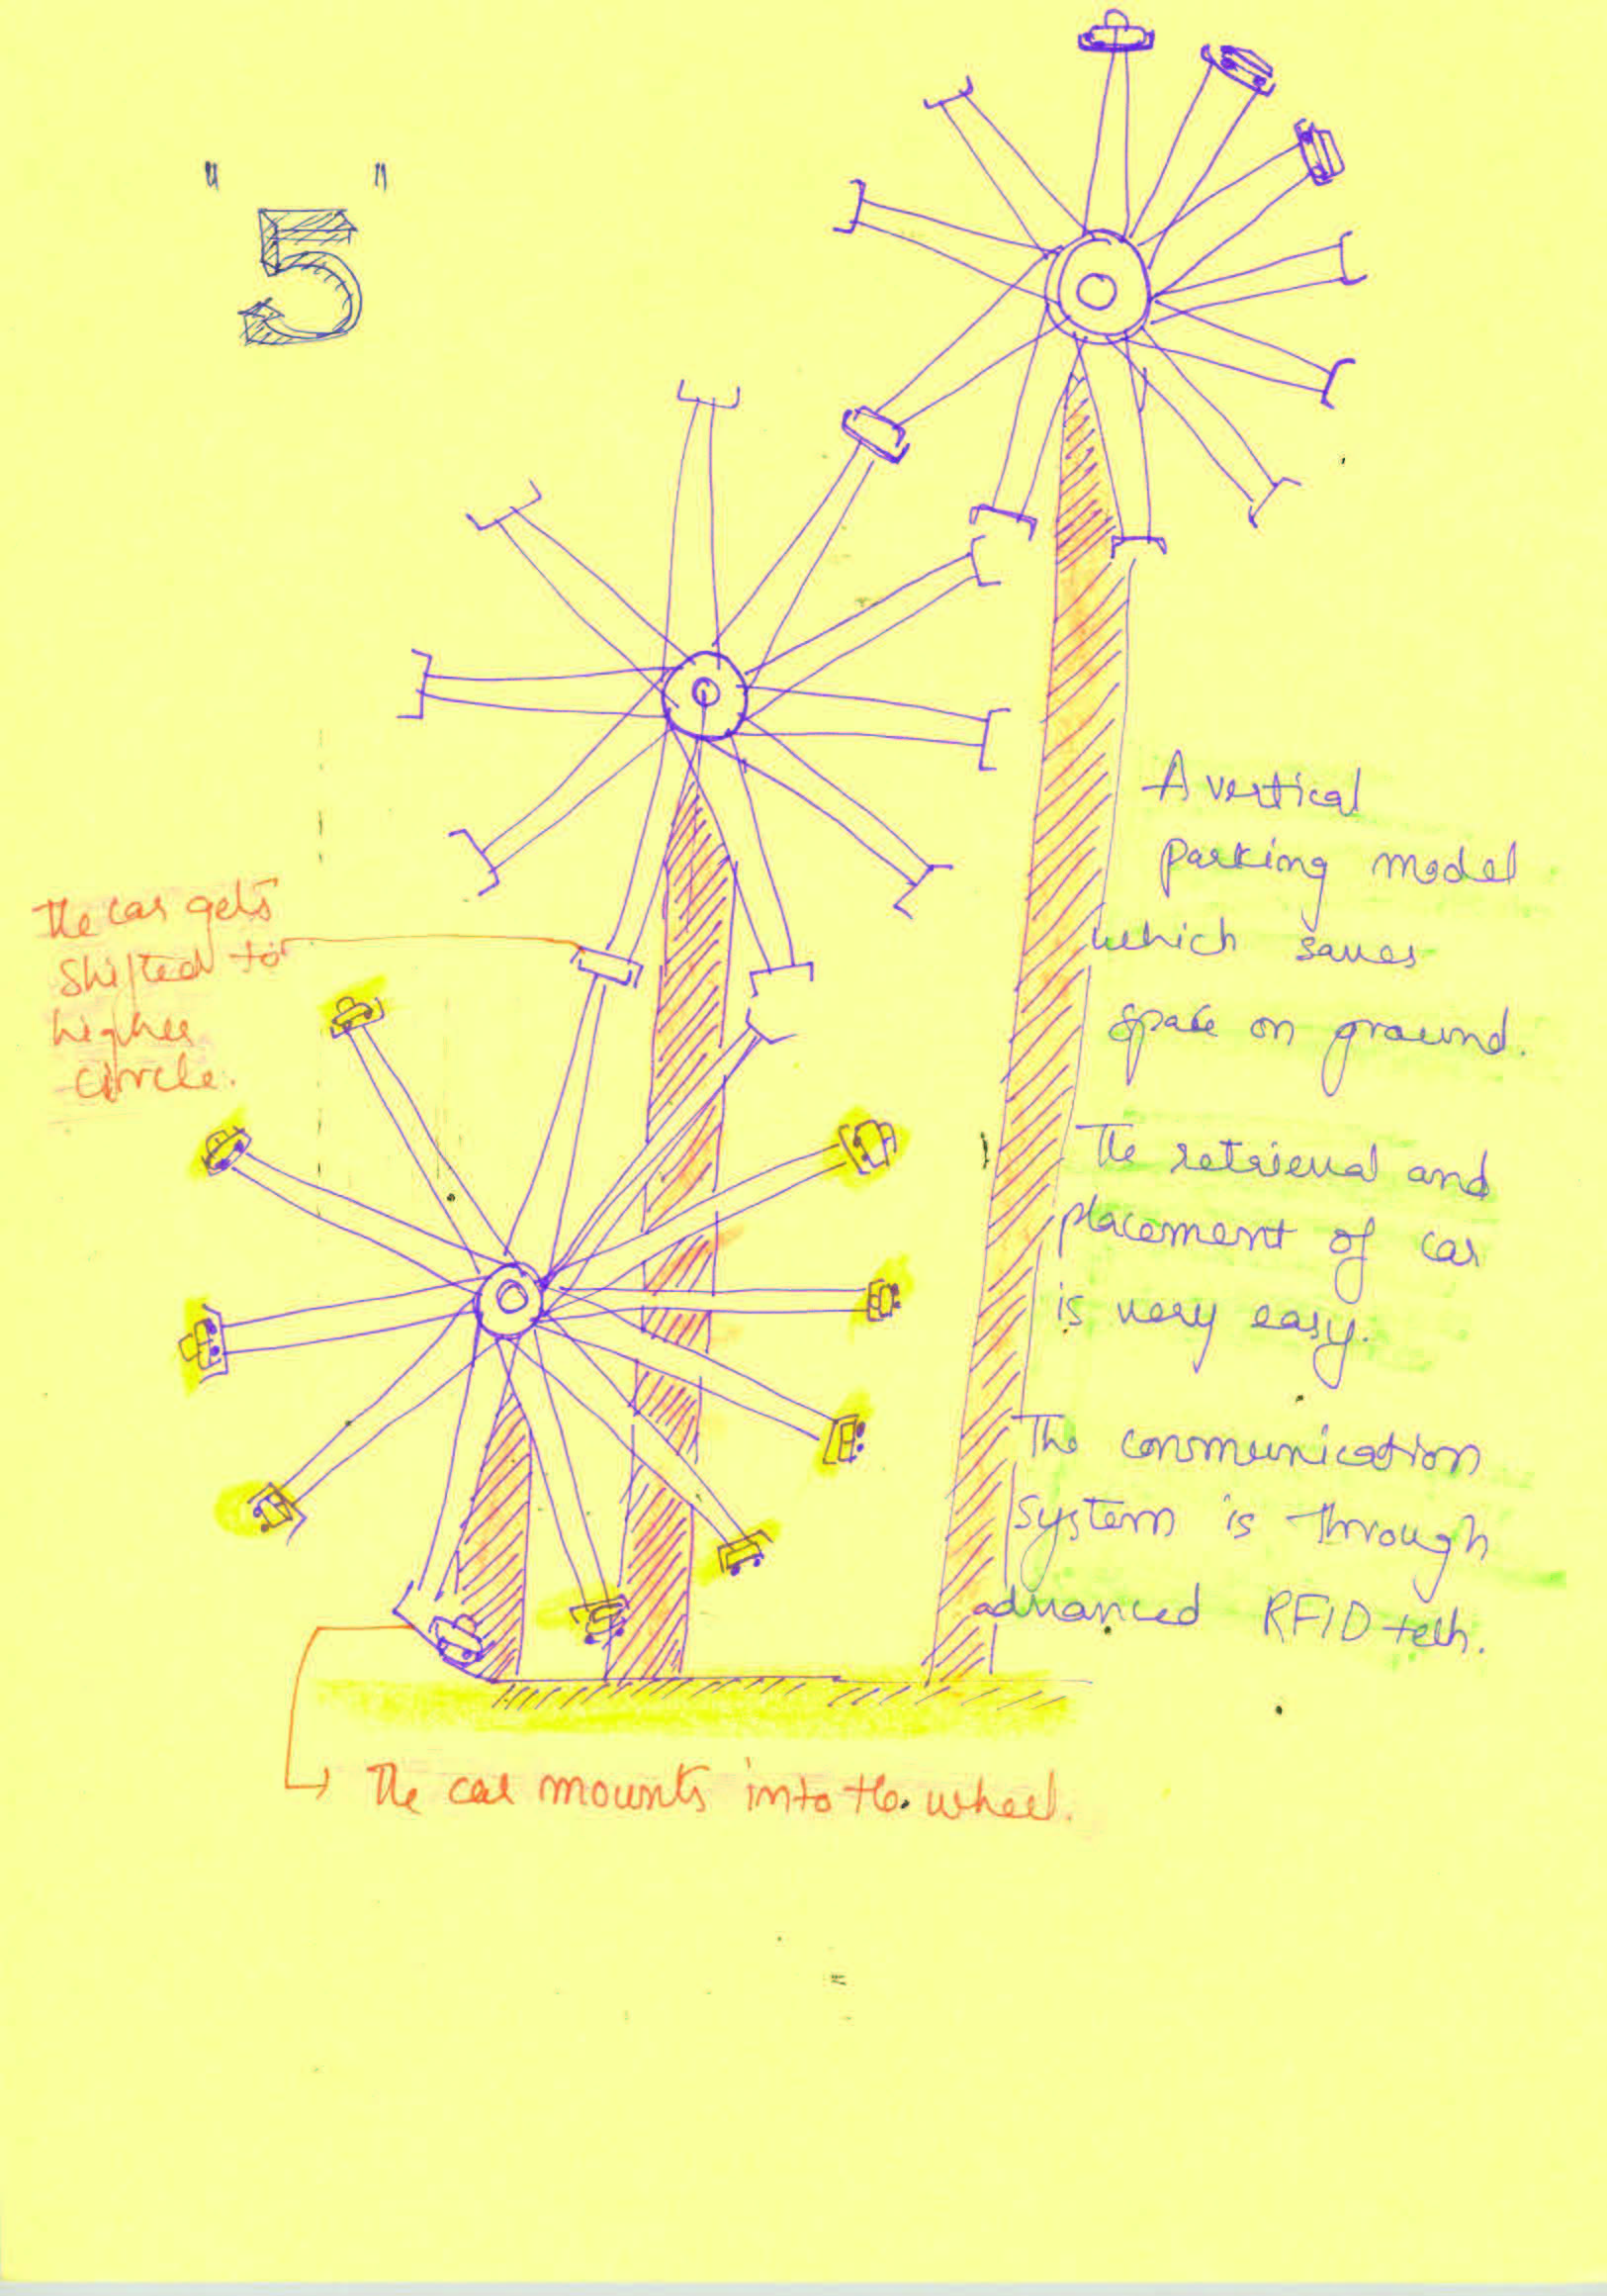 "5"
A vertical
parking model
which saves
space on ground.
The car gets
shifted to
higher
circle.
The retrieval and
placement of car
is very easy.
The communication
system is through
advanced RFID tech.
The car mounts into the wheel.